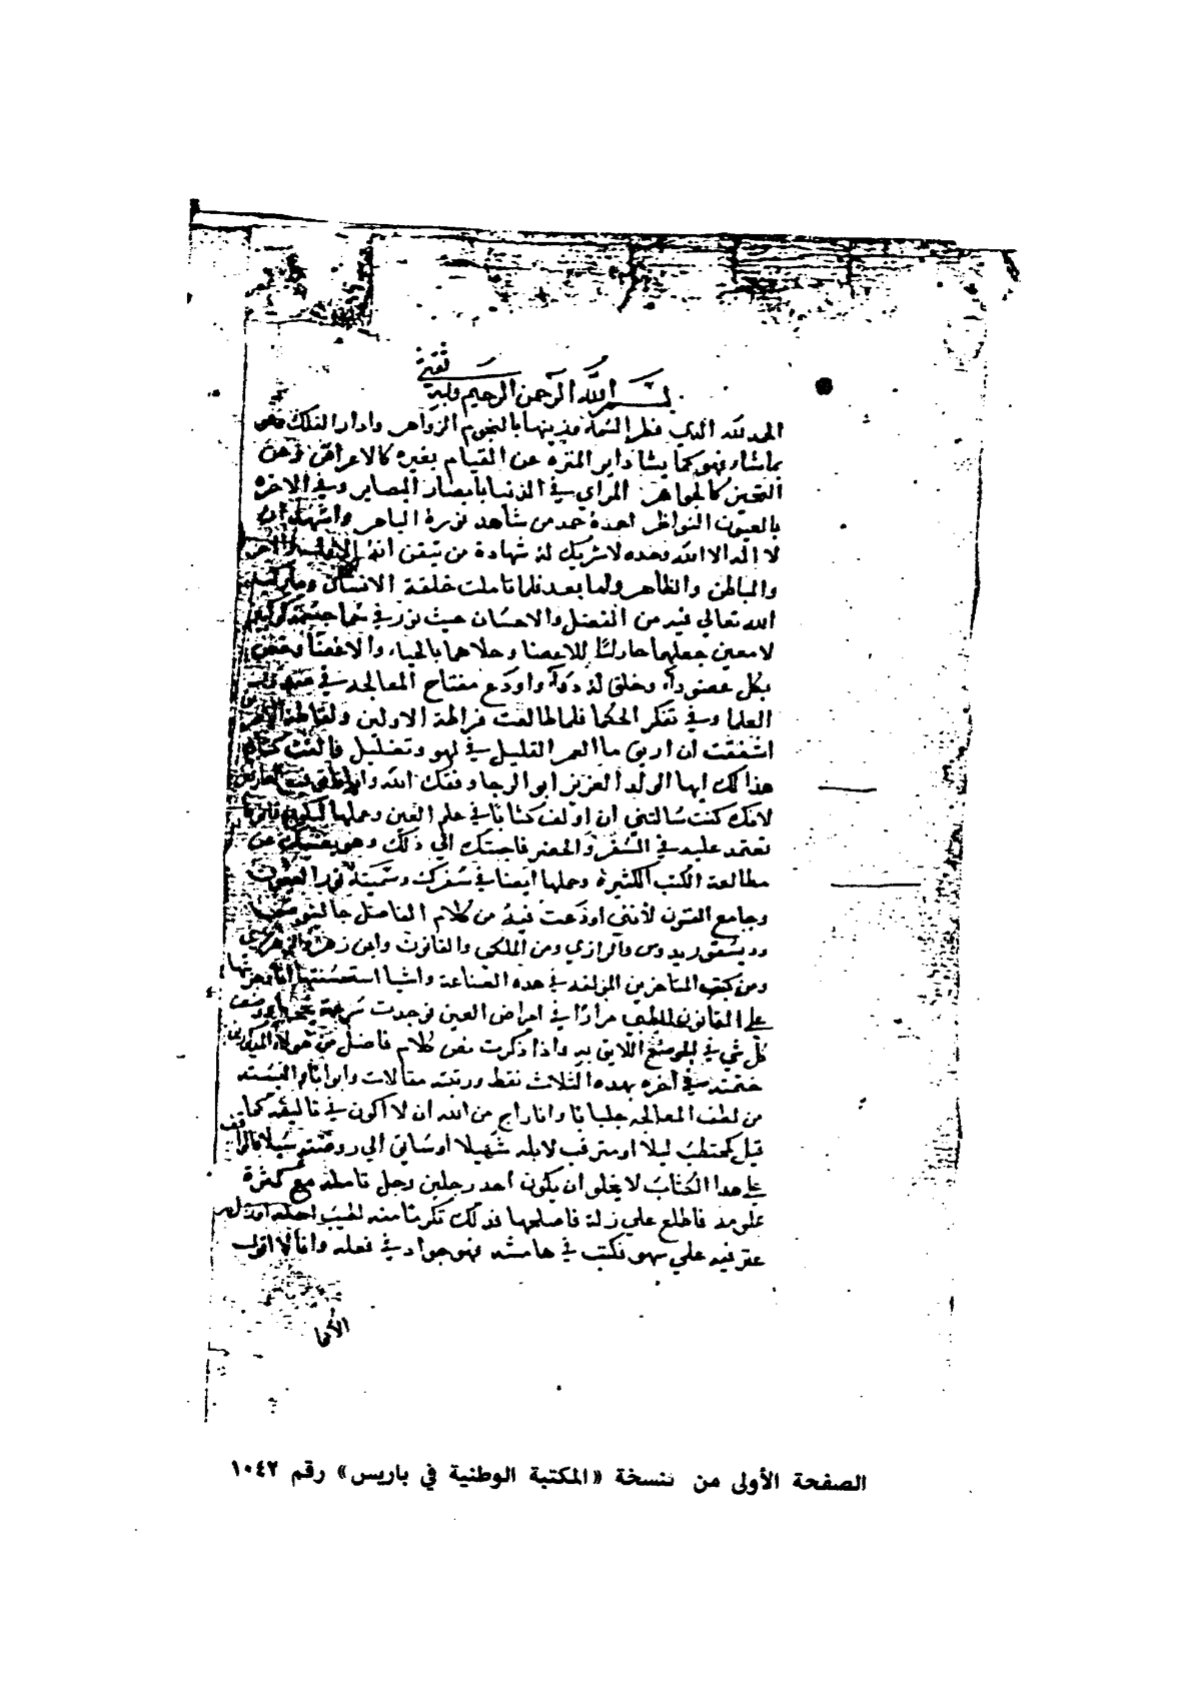 بسم الله الرحمن الرحيم وبه ثقتي
الحمد لله الذي فطر السما وزينها بالنجوم الزواهر وادار الفلك فهو
بماشاء فهو كما يشا داير المنزه عن القيام بغيره كالاعراض وعن
التحيز كالجواهر المراي في الدنيا بابصار البصاير وفي الاخره
بالعيون النواظر احمدة حمد من شاهد نوره الباهر واشهد ان
لا اله الا الله وحده لاشريك له شهادة من تيقن انه الاول والاخر
والباطن والظاهر ولما بعد فلما تاملت خلقة الانسان وما
الله تعالي فيه من التفضل والاحسان حيث نور في
لامعين جعلها حارسًا للاعضا وحلاهما بالحياء والاغضا وخص
بكل عضو داء وخلق له دواء واودع مفتاح المعالجه في
العلما وفي تفكر الحكما فلما طالعت الاولين
اشفقت ان ارمي ما العمر القليل في لهو وتضليل فالفت كتابي
هذا لك ايها الولد العزيز ابو الرجا وفقك الله
لانك كنت سالتني ان اولف كتابا في علم العين وعملها ليكون
تعتمد عليه في السفر والحضر فاجبتك الي ذلك وهو يغنيك عن
مطالعة الكتب الكثيرة وحملها ايضا في سفرك وسميته نور العيون
وجامع الفنون لأنني اودعت فيه من كلام الفاضل جالينوس
وديسقوريدوس والرازي ومن الملكي والقانون وابن زهر والزهراوي
ومن كتب المتاخرين المولفه في هده الصناعة واشيا استحسنتها انا
علي القانون الطبي مرارًا في امراض العين فوجدت
كل شي في الموضع اللايق به واذا ذكرت نص كلام فاضل من هولاء
ختمته في آخره بهده الثلاث نقط ورتبته مقالات وابوابا
من لطف المعالجه جلبابا وانا راج من الله ان لا اكون في تاليفه كما
قيل كحتطب ليلا او مترقب لابله سهيلا اوساني الي روضته سيلا
علي هدا الكتاب لا يخلو ان يكون أحد رجلين رجل تامله مع كثرة
علومه فاطلع علي زلة فاصلحها فدلك تكرمًا منه لطيب اصله
عثر فيه علي سهو فكتب في هامشه فهو جواد في فعله وانا لا اقول
الصفحة الأولى من نسخة «المكتبة الوطنية في باريس» رقم ١٠٤٢